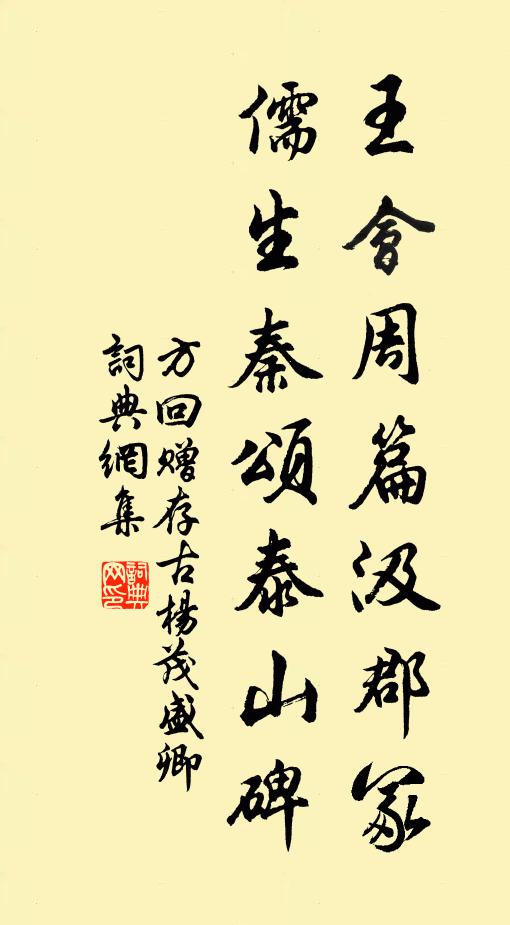 王會周篇汲郡冢
儒生秦頌泰山碑
方回赠存古楊茂盛卿
詞典網集
詞典网印